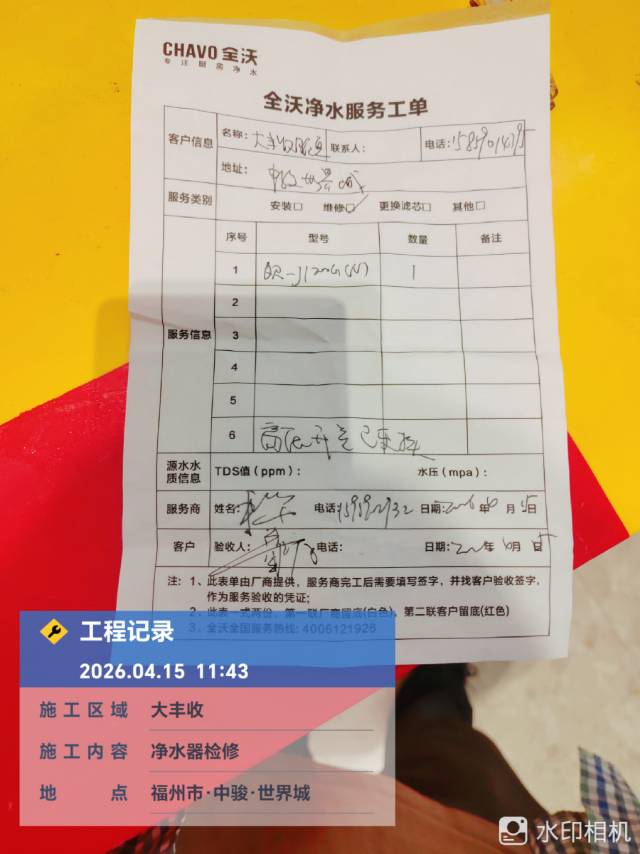 CHAVO 全沃
专注厨房净水
全沃净水服务工单
客户信息 名称: 大丰收 联系人: 电话:
地址: 中骏世界城
服务类别 安装□ 维修☑ 更换滤芯□ 其他□
序号 型号 数量 备注
1 1
2
服务信息 3
4
5
6 高低开关已更换
源水水质信息 TDS值(ppm): 水压(mpa):
服务商 姓名: 电话: 日期: 年 月 15日
客户 验收人: 电话: 日期: 年 月
注: 1、此表单由厂商提供，服务商完工后需要填写签字，并找客户验收签字，
作为服务验收的凭证;
2、此表一式两份，第一联厂商留底(白色)、第二联客户留底(红色)
3、全沃全国服务热线: 4006121926
工程记录
2026.04.15 11:43
施工区域 大丰收
施工内容 净水器检修
地点 福州市·中骏·世界城
水印相机